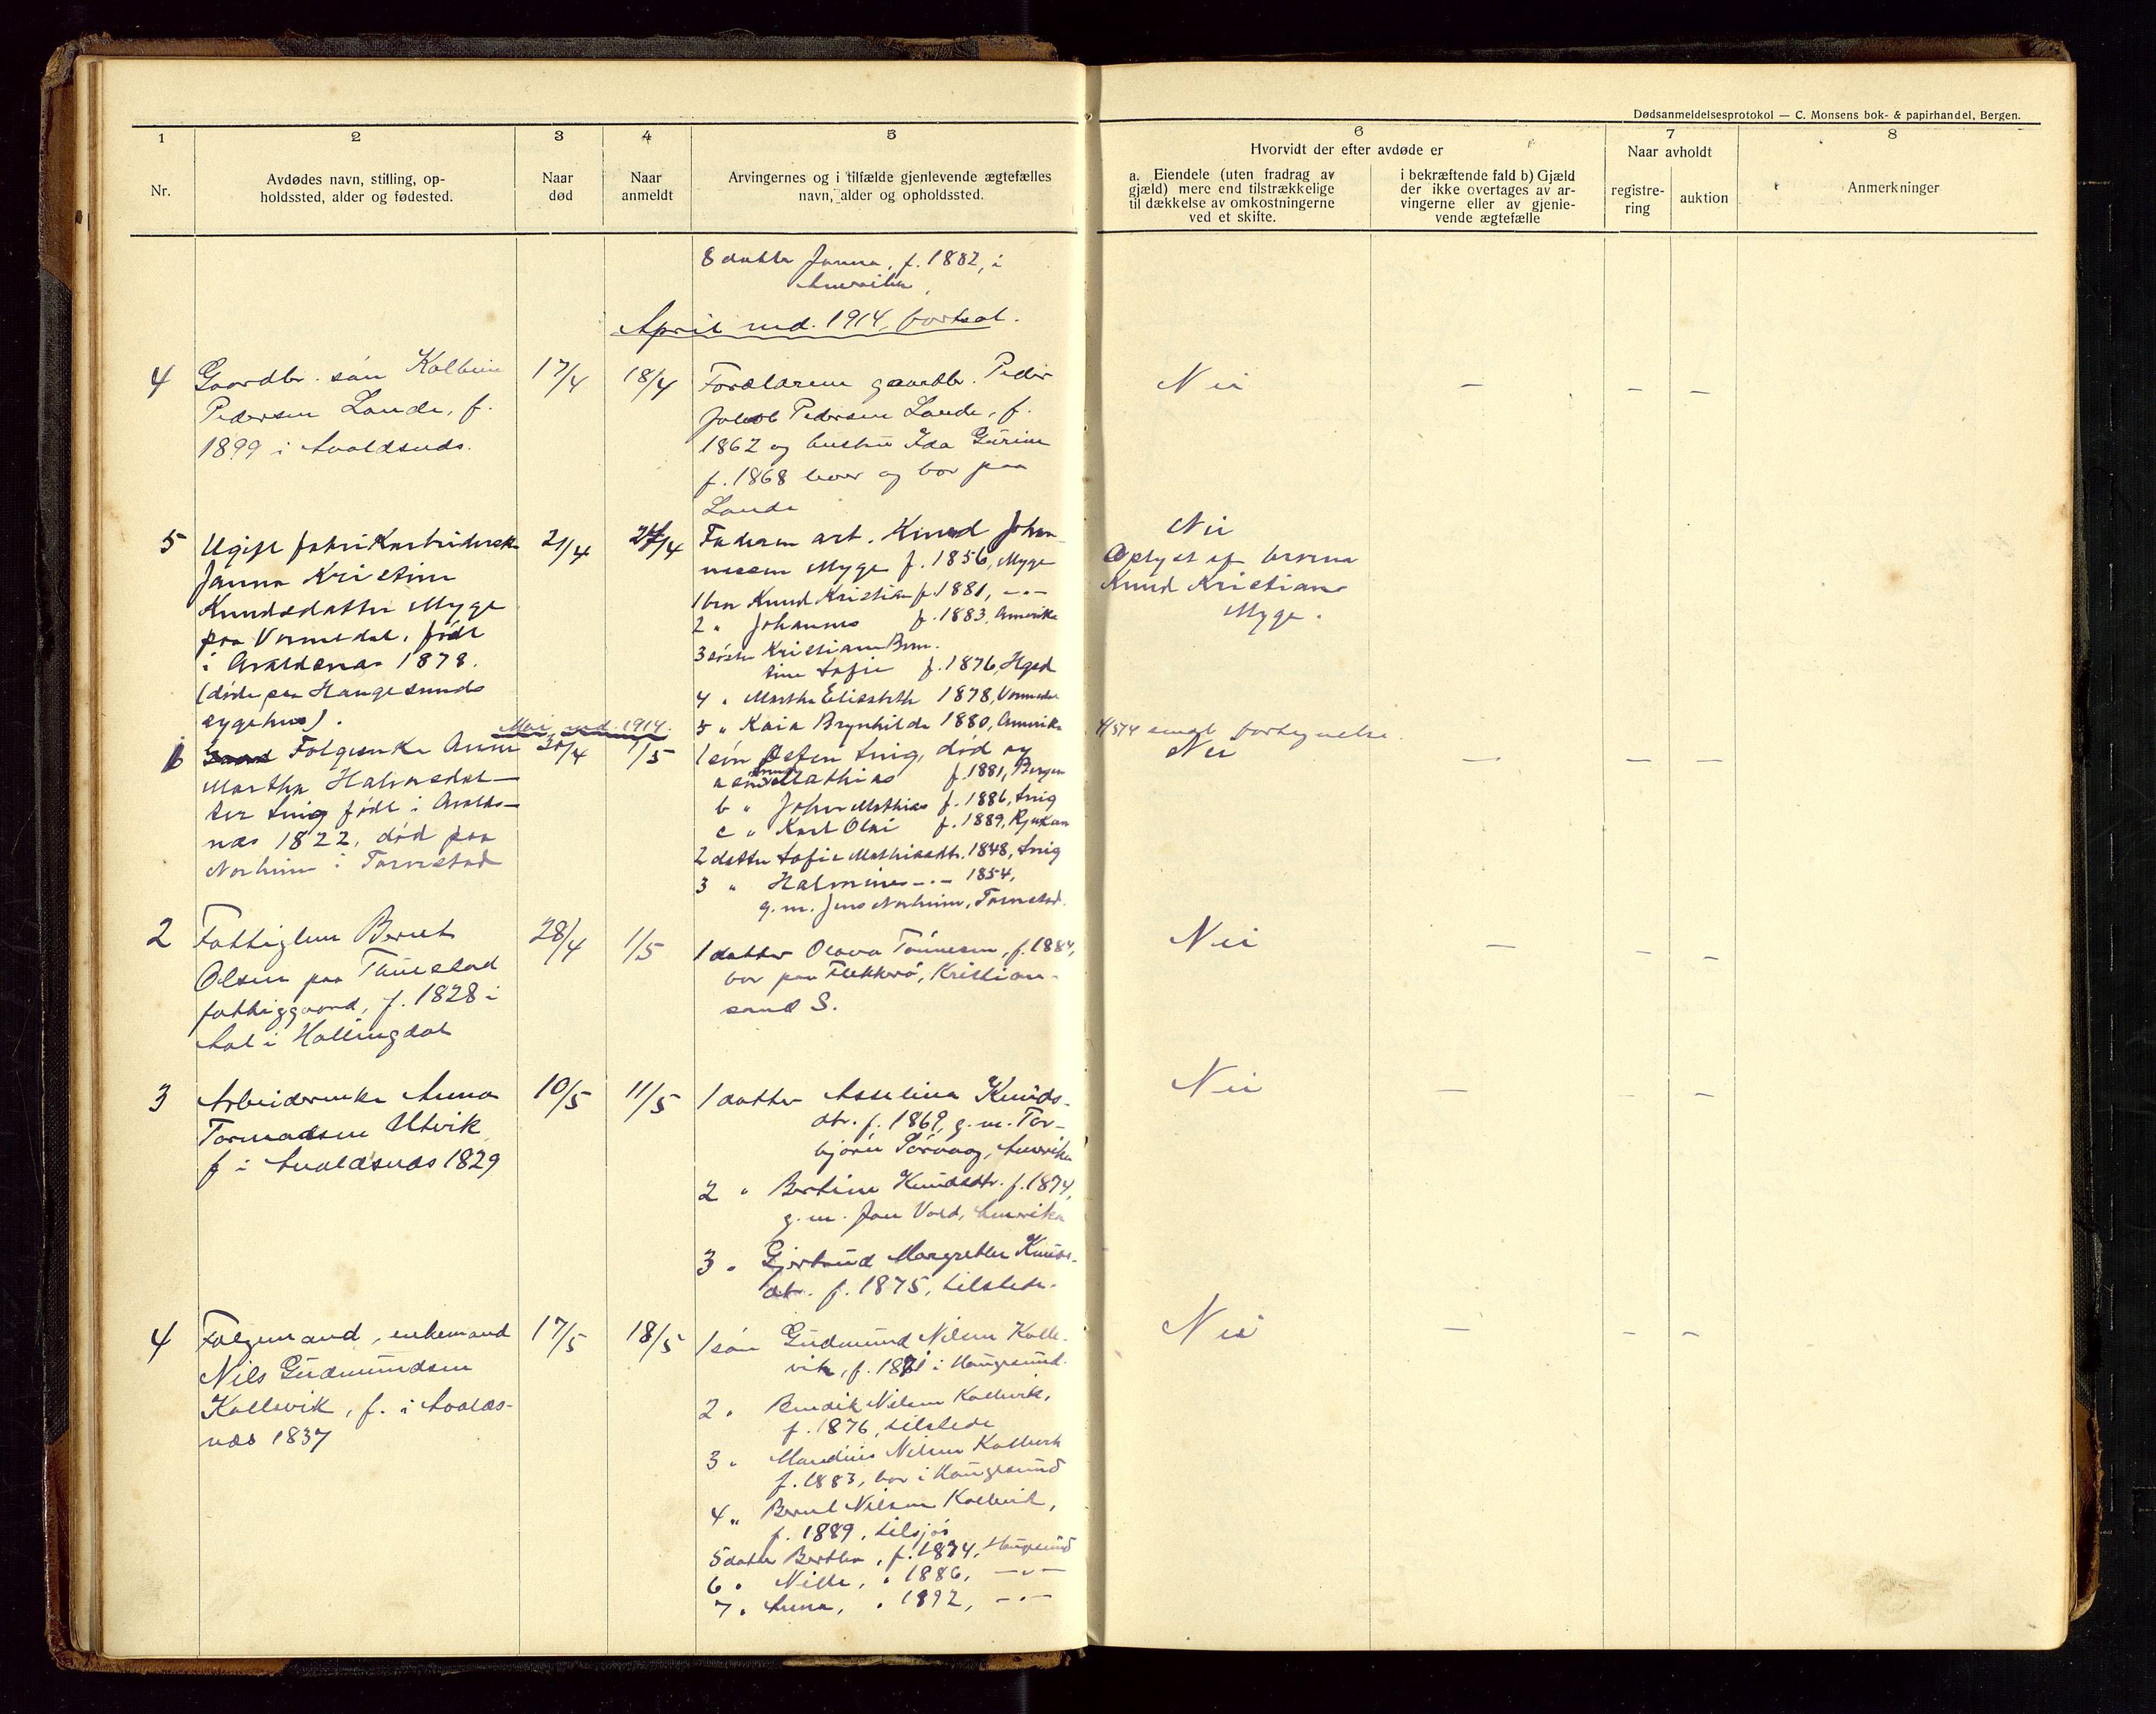 Dødsanmeldelsesprotokol — C. Monsens bok- & papirhandel, Bergen.
1
2
3
4
5
6
7
8
Nr.
Avdødes navn, stilling, op-
holdssted, alder og fødested.
Naar
død
Naar
anmeldt
Arvingernes og i tilfælde gjenlevende ægtefælles
navn, alder og opholdssted.
Hvorvidt der efter avdøde er
a. Eiendele (uten fradrag av
gjæld) mere end tilstrækkelige
til dækkelse av omkostningerne
ved et skifte.
i bekræftende fald b) Gjæld
der ikke overtages av ar-
vingerne eller av gjenle-
vende ægtefælle
Naar avholdt
registre-
ring
auktion
Anmerkninger
8 datter Janna, f. 1882, i
Amerika
April md. 1914, fortsat.
4
Gaardbr. søn Kolbein
Pedersen Lande, f.
1899 i Avaldsnes.
17/4
18/4
Forældrene gaardbr. Peder
Jakob Pedersen Lande, f.
1862 og hustru Ida Gurine
f. 1868 lever og bor paa
Lande
Nei
— — —
5
Ugift fabrikarbeiderske
Janna Kristine
Knudsdatter Myge
paa Vormedal, født
i Avaldsnæs 1878.
(døde paa Haugesunds
sygehus).
21/4
24/4
Faderen arb. Knud Johan-
nessen Myge f. 1856, Myge
1 bror Knud Kristian f. 1881, -"-
2 " Johannes f. 1883, Amerika
3 søster Kristiane Bern-
tine Sofie f. 1876, Hgsd
4 " Martha Elisabeth 1878, Vormedal
5 " Kaia Brynhilde 1880, Amerika
Nei
Oplyst af broren
Knud Kristian
Myge.
Mai md. 1914.
1
Folgeenke Anna
Martha Halvorsdat-
ter Snig født i Avalds-
næs 1822, død paa
Norheim i Torvestad
30/4
1/5
1 søn Osten Snig, død og
a søn Mathias f. 1881, Bergen
b " John Mathias f. 1886, Snig
c " Karl Olai f. 1889, Rjukan
2 datter Sofie Mathiasdtr. 1848, Snig
3 " Halvmine -"- 1854,
g. m. Jens Norheim, Torvestad.
Nei
— — —
2
Fattiglem Bernt
Olsen paa Tuestad
fattiggaard, f. 1828 i
Aal i Hallingdal
28/4
1/5
1 datter Olava Tønnesen, f. 1884,
bor paa Flekkerø, Kristian-
sand S.
Nei
— — —
3
Arbeiderenke Anna
Tormodsen Utvik
f i Avaldsnæs 1829
10/5
11/5
1 datter Asseline Knuds-
dtr. f. 1869, g. m. Tor-
bjørn Sørvaag, Amerika
2 " Bertine Knudsdtr. f. 1874,
g. m. Jon Vold, Amerika
3 " Gjertrud Margrethe Knuds-
dtr. f. 1875, tilstede.
Nei
— — —
4
Folgemand, enkemand
Nils Gudmundsen
Kallevik, f. i Avalds-
næs 1837
17/5
18/5
1 søn Gudmund Nilsen Kalle-
vik, f. 1871 i Haugesund.
2 " Bendik Nilsen Kallevik,
f. 1876, tilstede
3 " Mandius Nilsen Kallevik
f. 1883, bor i Haugesund
4 " Bernt Nilsen Kallevik,
f. 1889, tilsjøs
5 datter Bertha, f. 1874, Haugesund
6 " Nille, " 1886, -"-
7 " Anna, " 1892, -"-
Nei
— — —